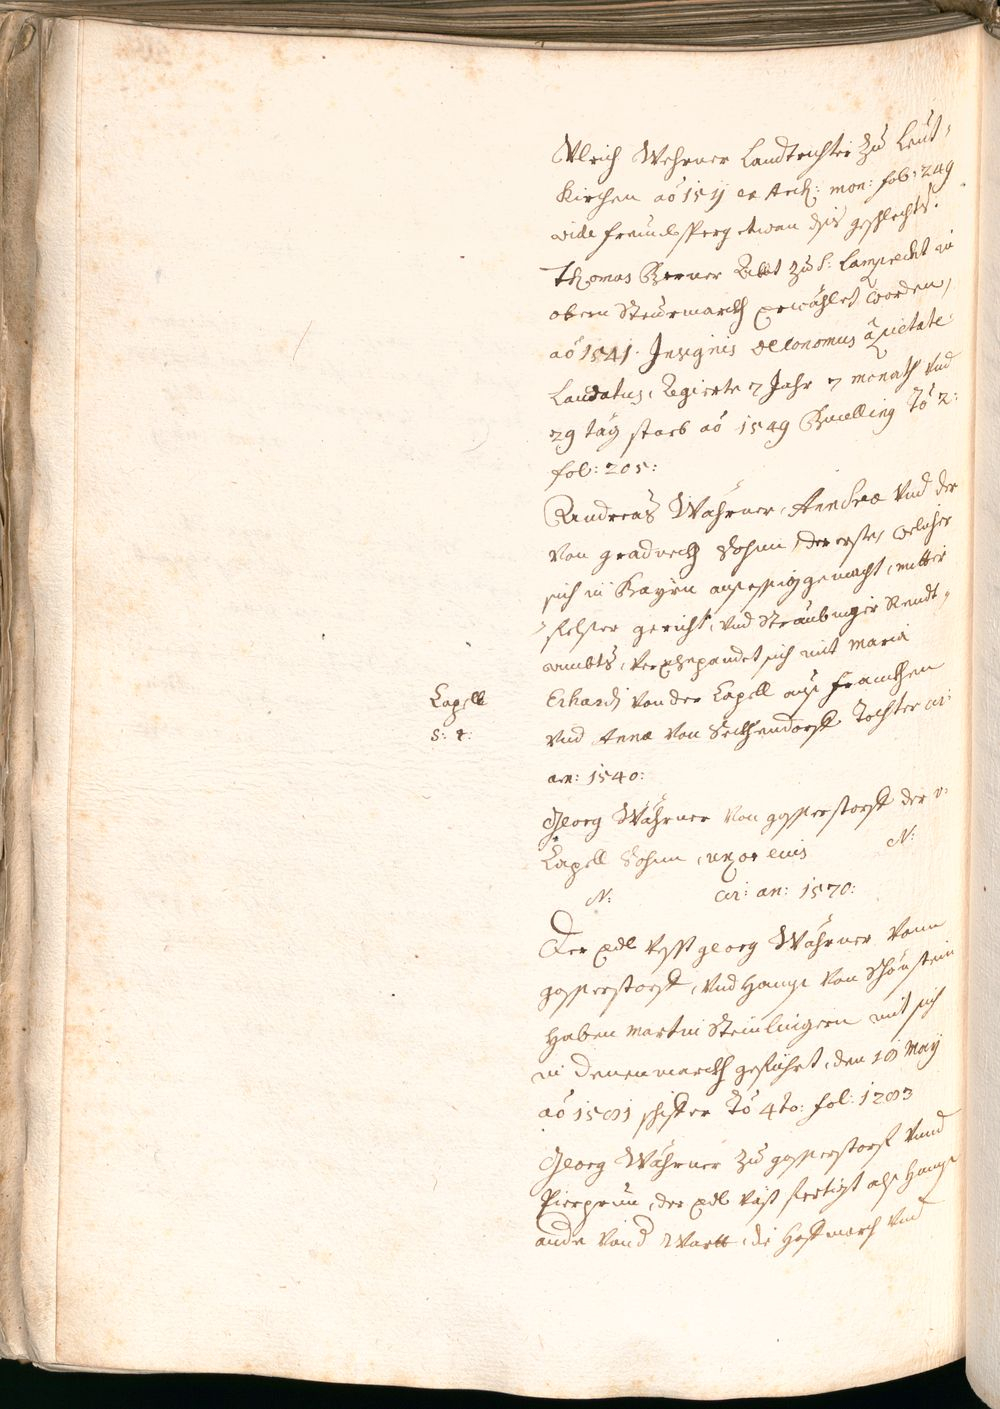 Ulrich Wehrner Landtrichter zu Leut-
kirchen aö 1511 ex Arch: mon: fol: 249
vide Freundsperg etwan dis geschlechts.
Thomas Werner Abbt zu S: Lamprecht in
obern Steürmarckh erwöhlet worden,
aö 1541. Insignis oeconomus à pietate
Laudatus, Regierte 7 Jahr 7 monath vnd
29 täg starb aö 1549 Bucelling Tö 2:
fol: 205:
Andreas Währner, Andreae vnd der
von gradneckh Sohn, der erste, welcher
sich in Bayrn ansessig gemacht, mitter-
felser gericht, vnd Straubinger Rendt-
ambts, verehepaudet sich mit Maria
Erhardj von der Capell auß Franckhen
vnd Anna von Seckhendorff Tochter cir:
an: 1540:
Capell
S: 4:
Georg Währner von gosserstorff der v:
Capell Sohn, uxor eius N:
N: cir: an: 1570:
Der edl vesst georg Währner vonn
gosserstorff, vnd Hanß von Schönstein
haben Martin Steinlingern mit sich
in Denenmarckh geführt, den 18 May
aö 1581 schifter Tö 4to: fol: 1283
Georg Währner zu gosserstorf vnnd
Pierprun, der edl väst fertigt alß Hanß
ander vnnd Wartt, die Hoffmarch vnd